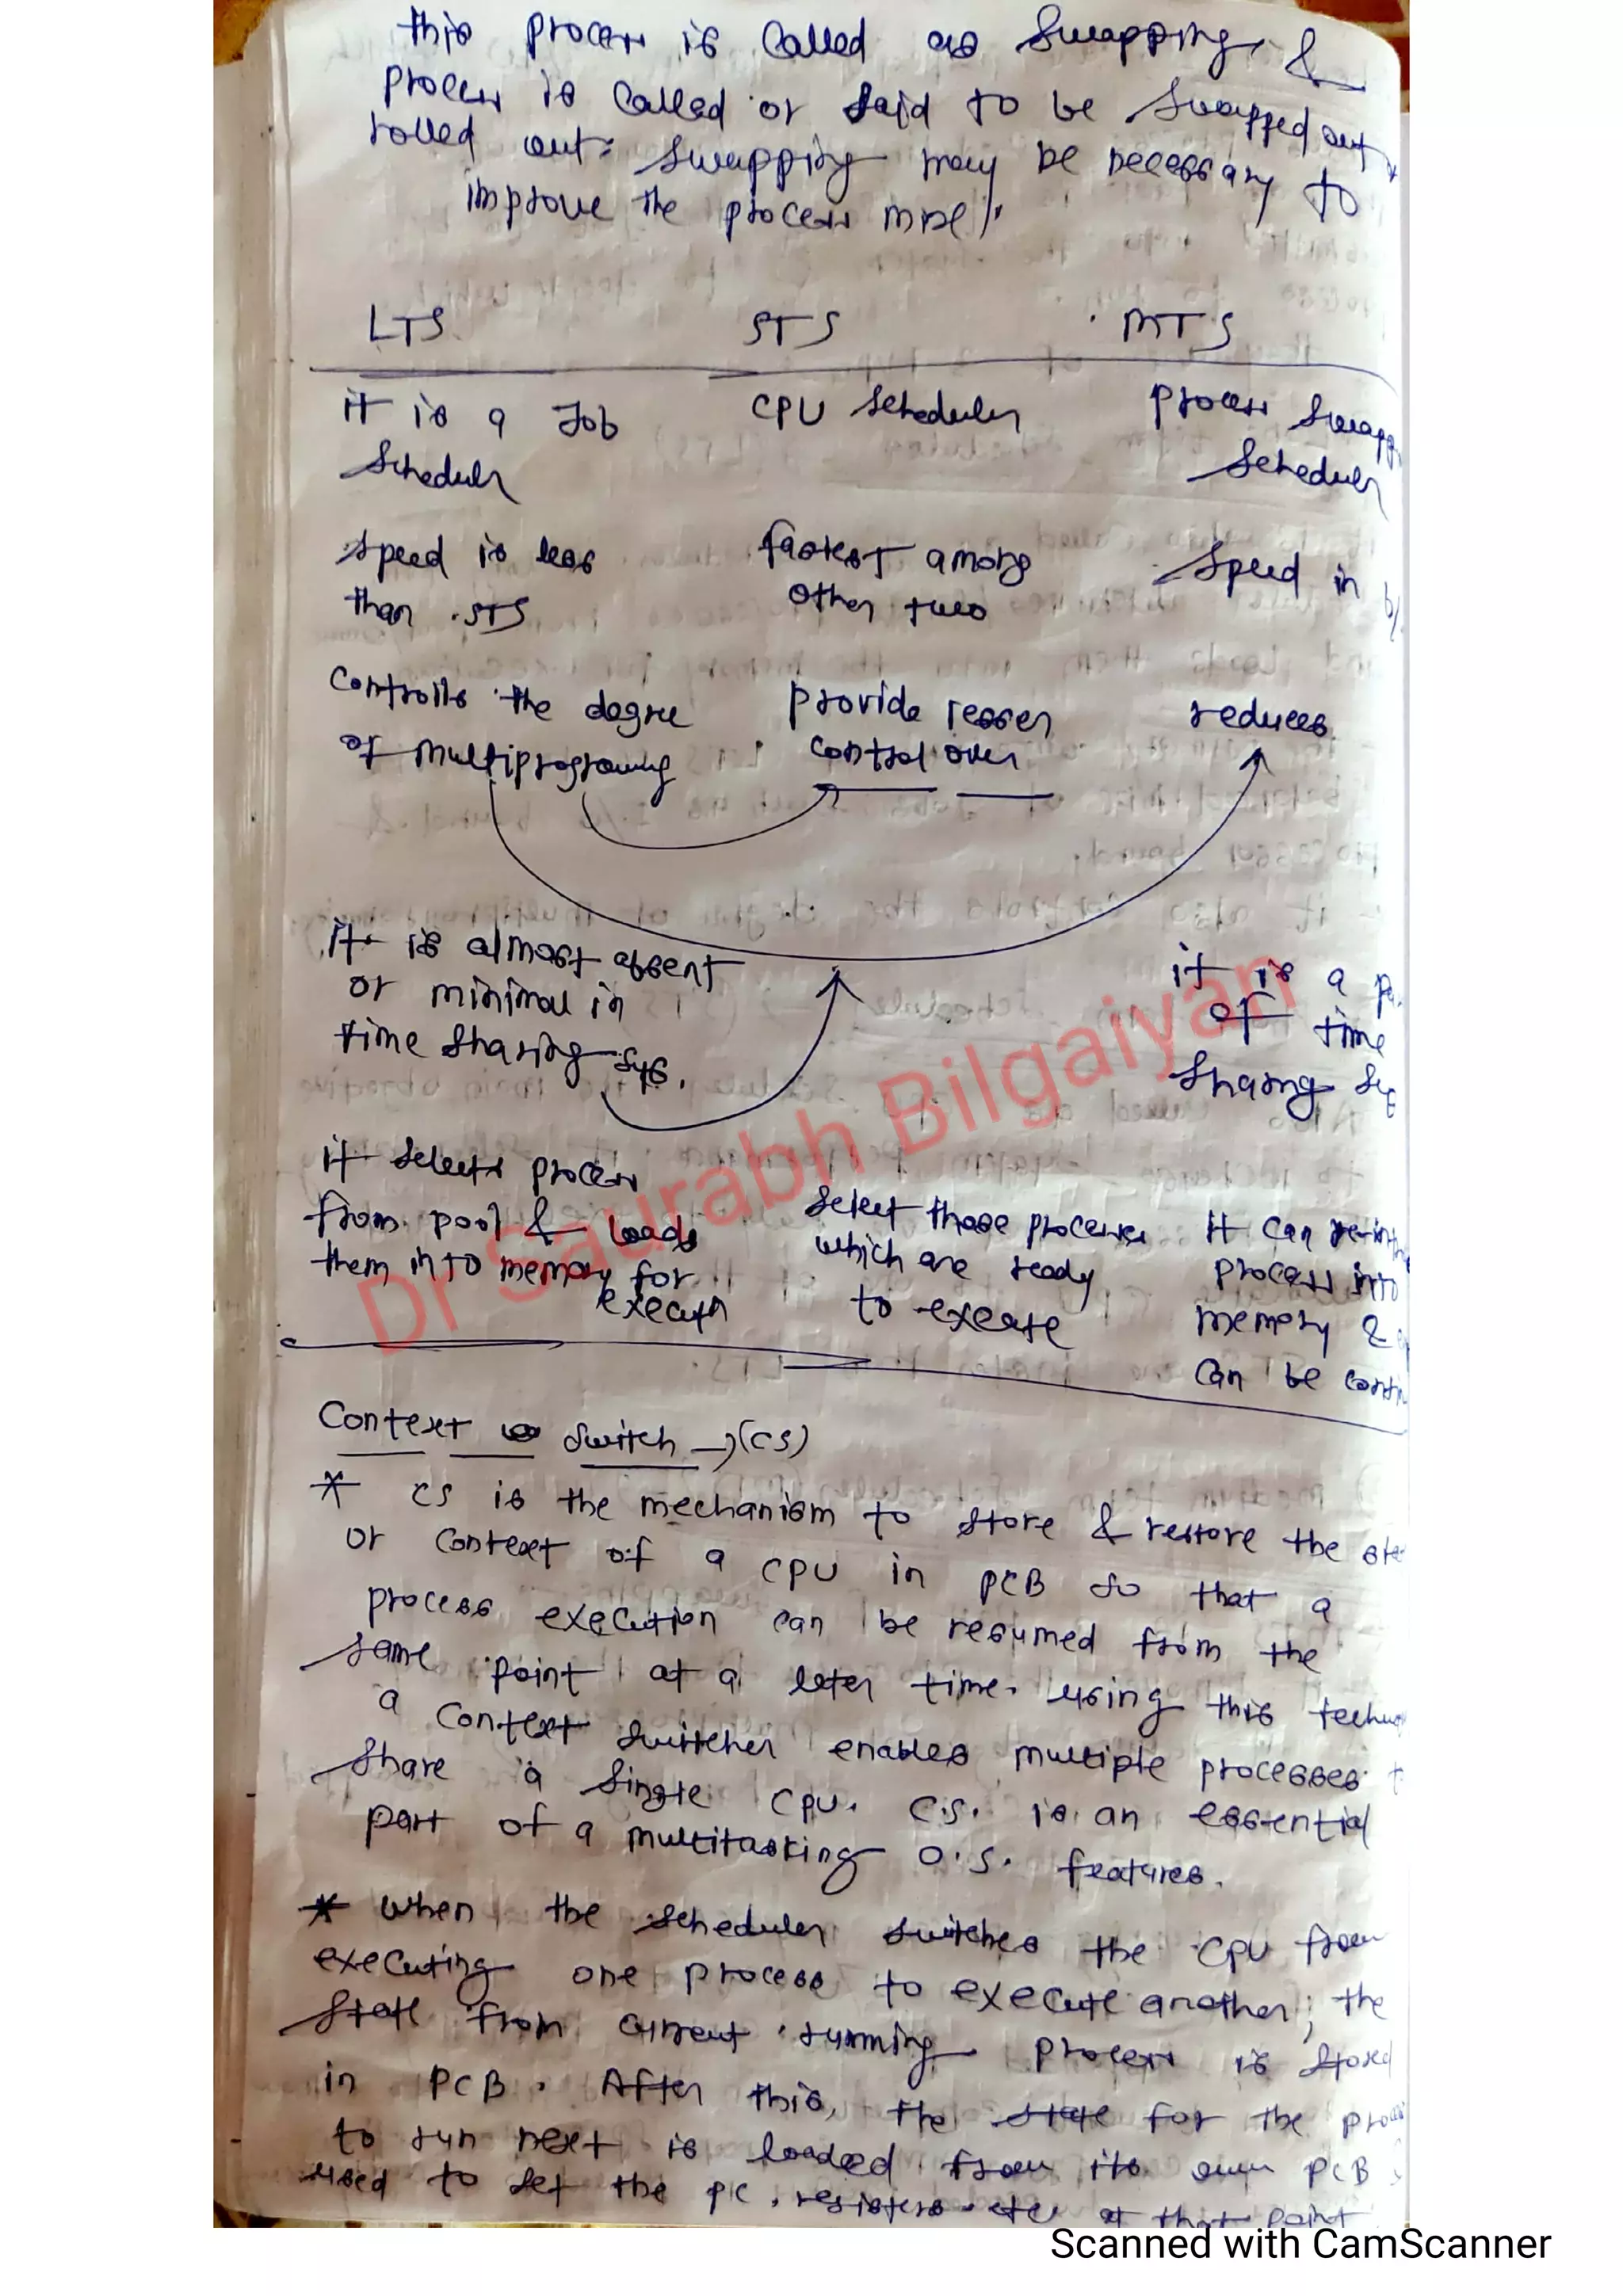 this process is called as Swapping, &
process is called or said to be swapped out
rolled out. Swapping may be necessary to
improve the process mix
LTS STS MTS
it is a Job CPU Scheduler process
Scheduler Scheduler
speed is less fastest among Speed in
than STS other two
Controlls the degree provide lesser reduces
of multiprograming control over
it is almost absent it is a
or minimal in of time
time sharing sys. sharing
it selects process
from pool & loads select those processes it can
them into memory for which are ready process into
execution to execute memory &
can be
Context switch → (CS)
* CS is the mechanism to store & restore the
or context of a CPU in PCB so that a
process execution can be resumed from the
same point at a later time. using this
a context switcher enables multiple processes
share a single CPU. C.S. is an essential
part of a multitasking O.S. features.
* when the scheduler switches the CPU from
executing one process to execute another, the
state from current running process is stored
in PCB. After this, the state for the
to run next is loaded from its own PCB
used to set the PC, registers etc at that point
Dr Saurabh Bilgaiyan
Scanned with CamScanner